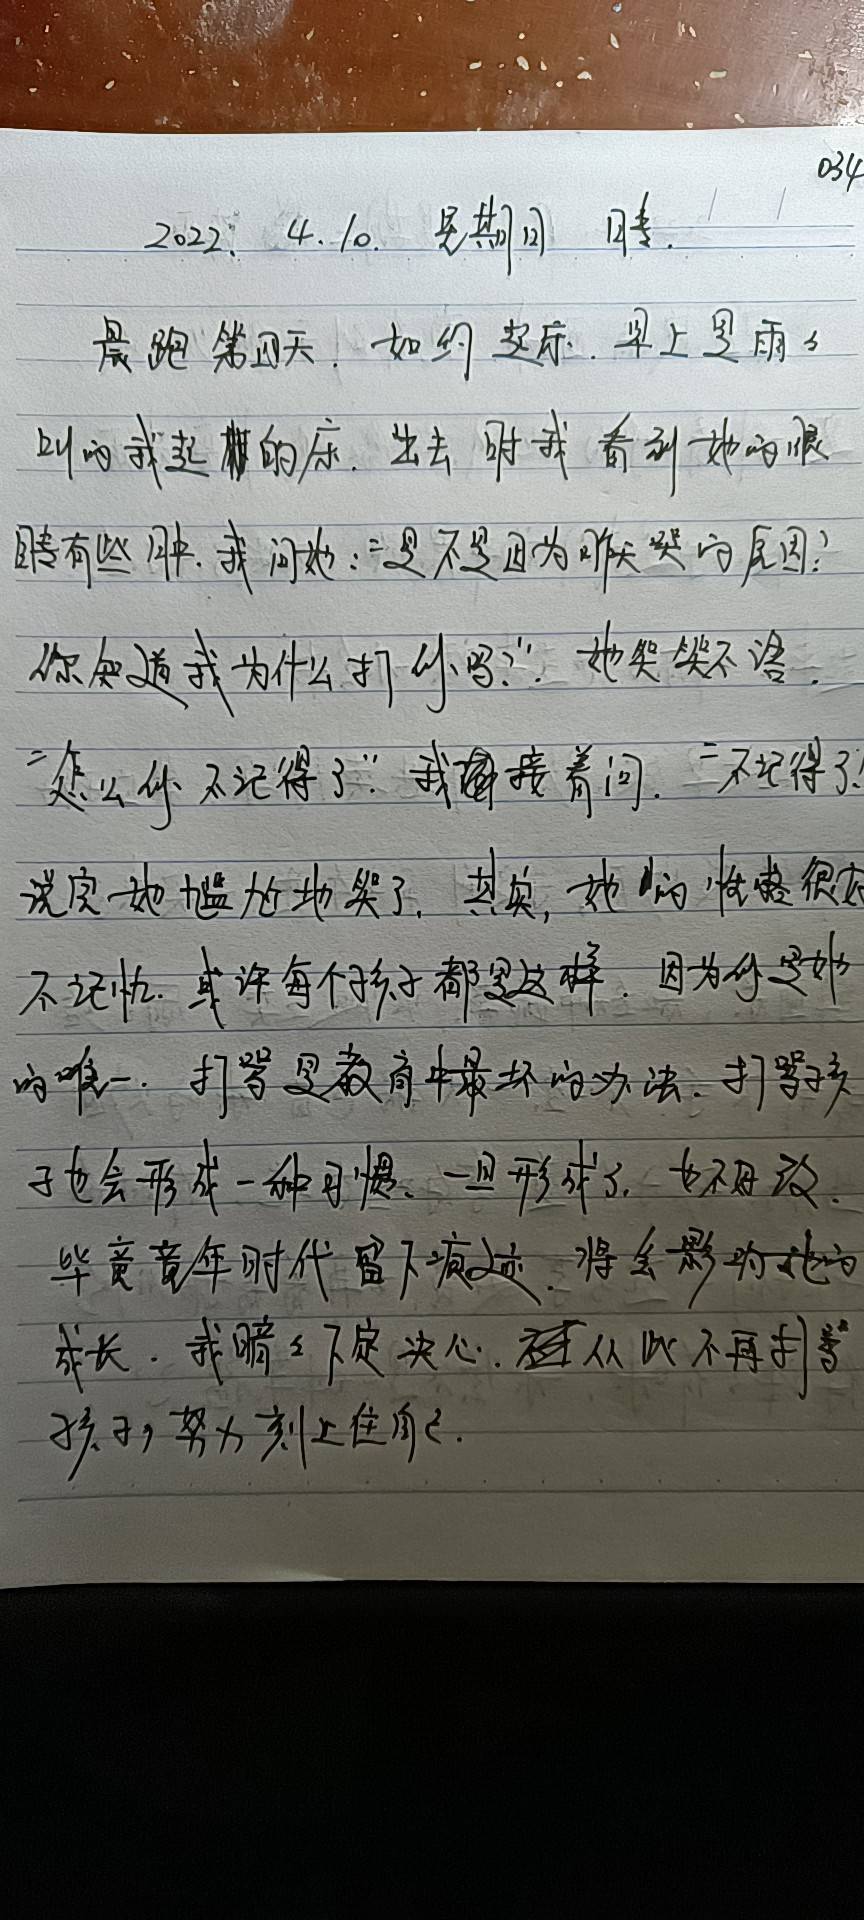 034
2022. 4.10. 星期日 晴.
晨跑第四天! 如约起床. 早上是雨々
叫的我起的床. 出去时我看到她的眼
睛有些肿. 我问她:“是不是因为昨天哭的原因?
你知道我为什么打你吗?”. 她笑笑不语.
“怎么你不记得了”. 我接着问. “不记得了!
说完她尴尬地笑了. 其实, 她的性格很好
不记仇. 或许每个孩子都是这样. 因为你是她
的唯一. 打骂是教育中最坏的办法. 打骂孩
子也会形成一种习惯. 一旦形成了. 也不好改.
毕竟童年时代留下痕迹. 将会影响她的
成长. 我暗々下定决心. 从此不再打骂
孩子, 努力刻上住自己.